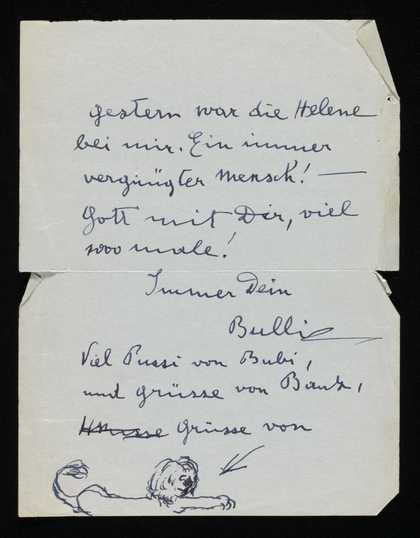 gestern war die Helene
bei mir. Ein immer
vergnügter Mensch! —
Gott mit Dir, viel
1000 male!
Immer Dein
Bulli
Viel Pussi von Bubi,
und grüsse von
Grüsse von